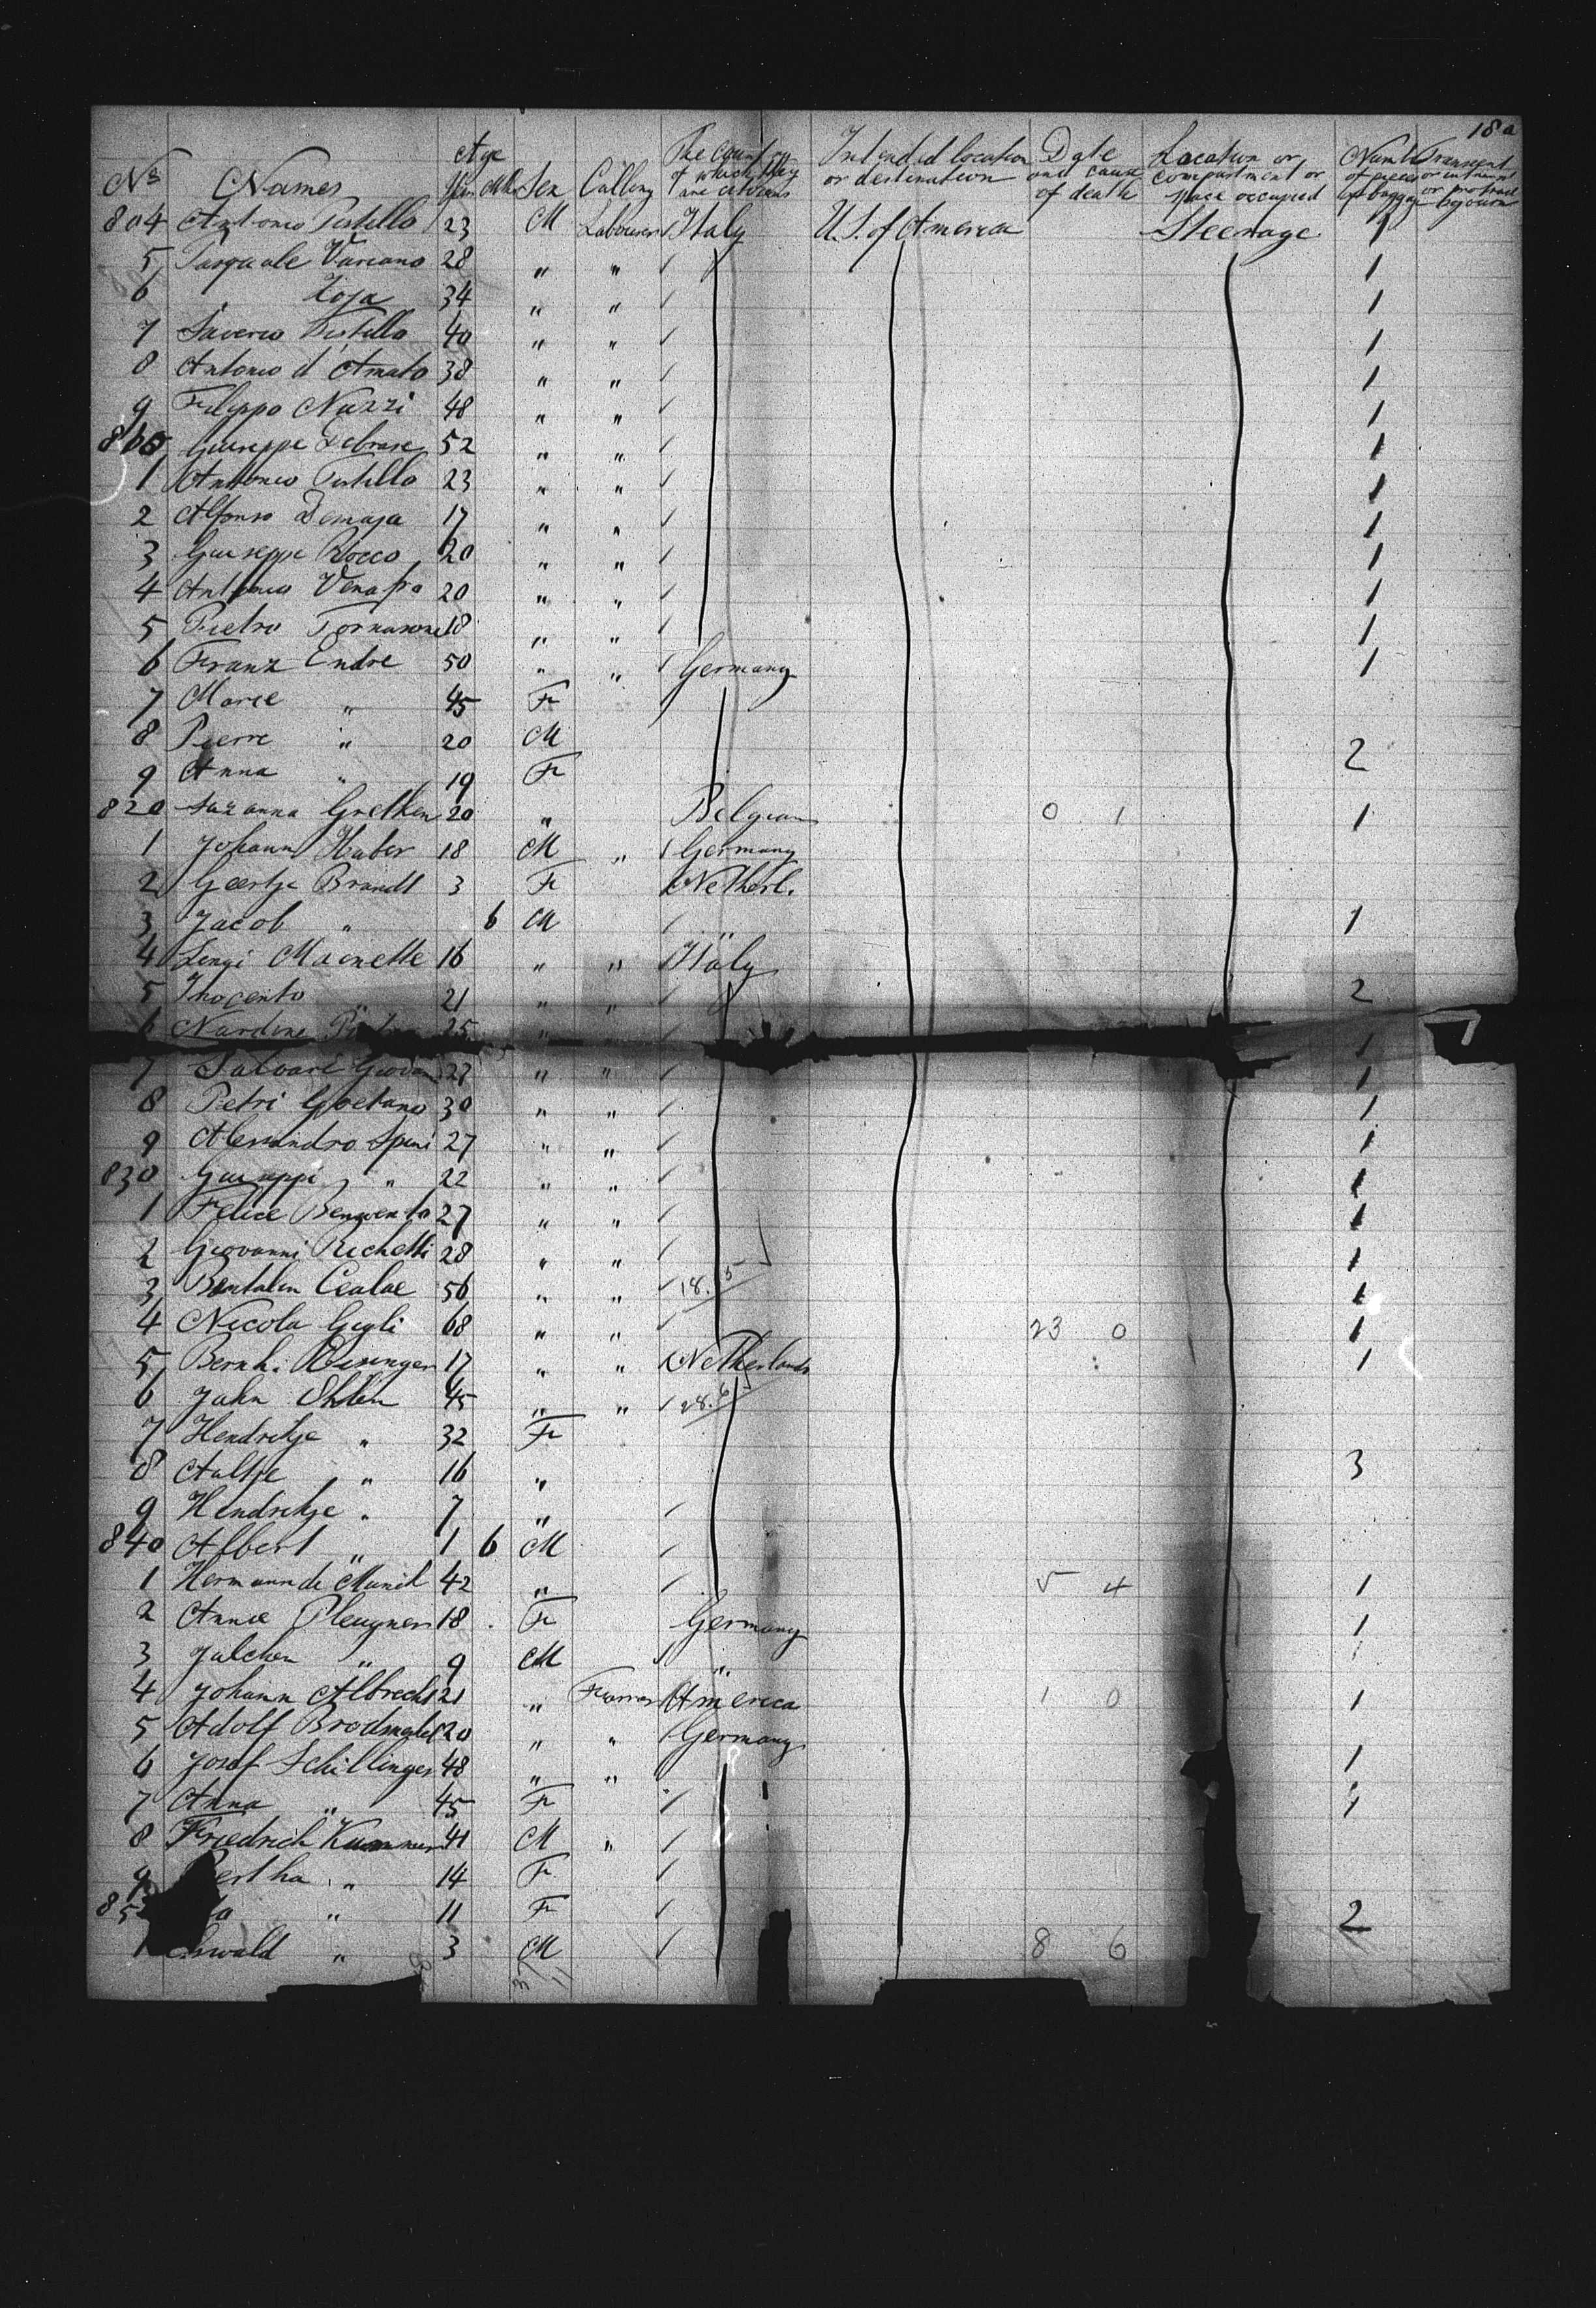 18a
No Names Age Years Mths Sex Calling The country of which they are citizens Intended location or destination Date and cause of death Location or compartment or space occupied Number of pieces of baggage Transient or in transit or protracted sojourn
804 Antonio Pistillo 23 M Labourer Italy U.S. of America Steerage 1
5 Pasquale Variano 28 " " 1
6 Zoja 34 " " 1
7 Saverio Pistillo 40 " " 1
8 Antonio d'Amato 38 " " 1
9 Filippo Nuzzi 48 " " 1
810 Giuseppe 52 " " 1
1 Antonio Pistillo 23 " " 1
2 Alfonso Demaja 17 " " 1
3 Giuseppe Rocco 20 " " 1
4 Antonio Venafra 20 " " 1
5 Pietro Tornasone 18 " " 1
6 Franz Endre 50 " " Germany 1
7 Marie " 45 F
8 Pierre " 20 M 2
9 Anna " 19 F
820 Suzanna Grethen 20 " Belgium 0 1 1
1 Johann Huber 18 M " Germany
2 Geertje Brandt 3 F Netherl.
3 Jacob " 6 M " 1
4 Luigi Mainette 16 " " Italy
5 Inocento " 21 " " 2
6 Nardine 25 " 1
7 Salvare Giovan 27 " " 1
8 Petri Goetano 30 " " 1
9 Alessandro Speni 27 " " 1
830 Guiseppi " 22 " " 1
1 Felice Benuvento 27 " " 1
2 Giovanni Richetti 28 " " 1
3 Bentalen Cealae 56 " " 18.5 1
4 Nicola Gigli 68 " " 23 0 1
5 Bernh. 17 " " Netherlands 1
6 John Ehlen 45 " " 28.6
7 Hendrikje " 32 F
8 Aaltje " 16 " 3
9 Hendrikje " 7 "
840 Albert " 1 6 M
1 Hermann de Munik 42 " 5 4 1
2 Annie Pleugner 18 F Germany 1
3 Julchen " 9 M "
4 Johann Albrecht 21 " Farmer America 1 0 1
5 Adolf 20 " " Germany
6 Josef Schillinger 48 " " 1
7 Anna " 45 F 1
8 Friedrich Kummer 41 M "
9 Bertha " 14 F
85 " 11 F 2
1 Oswald " 3 M 8 6